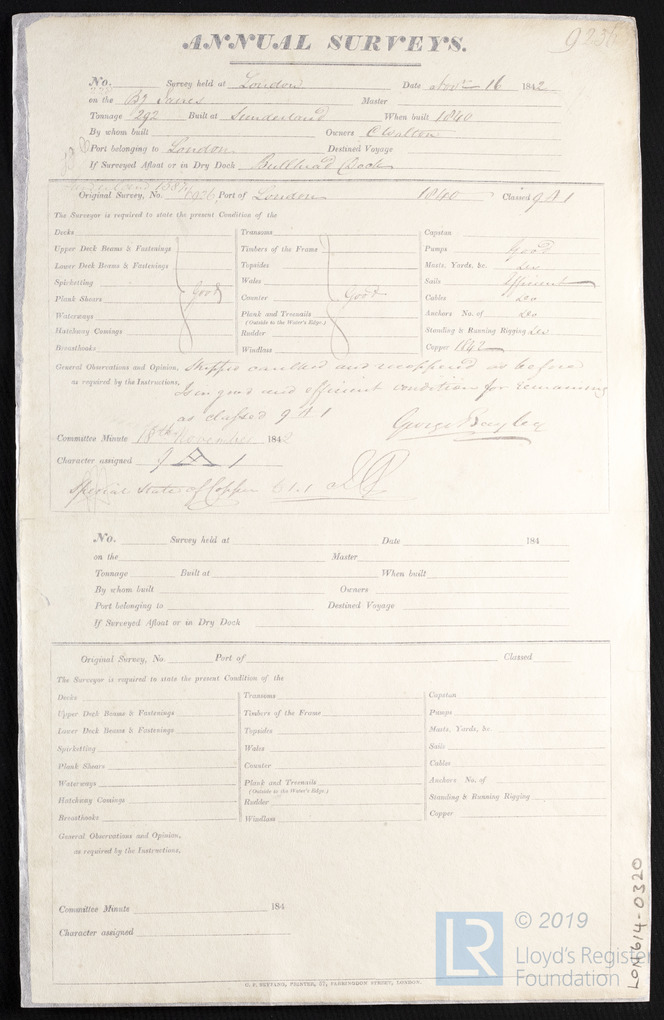 ANNUAL SURVEYS.
No. Survey held at London Date Novr 16 1842
on the Bg Master
Tonnage 292 Built at Sunderland When built 1840
By whom built Owners
Port belonging to London Destined Voyage
If Surveyed Afloat or in Dry Dock Bullhead Dock
Original Survey, No. Port of London 1840 Classed 9 A 1
The Surveyor is required to state the present Condition of the
Decks Transoms Capstan
Upper Deck Beams & Fastenings Timbers of the Frame Pumps Good
Lower Deck Beams & Fastenings Topsides Masts, Yards, &c.
Spirketting Good Wales Sails Efficient
Plank Shears Counter Good Cables
Waterways Plank and Treenails Anchors No. of
(Outside to the Water's Edge.)
Hatchway Comings Rudder Standing & Running Rigging
Breasthooks Windlass Copper 1842
General Observations and Opinion, Stripped caulked and recoppered as before
as required by the Instructions, Is in good and efficient condition for remaining
as classed 9 A 1
Committee Minute 18th November 1842
Character assigned 9 A 1
Special State of Copper 61.1
No. Survey held at Date 184
on the Master
Tonnage Built at When built
By whom built Owners
Port belonging to Destined Voyage
If Surveyed Afloat or in Dry Dock
Original Survey, No. Port of Classed
The Surveyor is required to state the present Condition of the
Decks Transoms Capstan
Upper Deck Beams & Fastenings Timbers of the Frame Pumps
Lower Deck Beams & Fastenings Topsides Masts, Yards, &c.
Spirketting Wales Sails
Plank Shears Counter Cables
Waterways Plank and Treenails Anchors No. of
(Outside to the Water's Edge.)
Hatchway Comings Rudder Standing & Running Rigging
Breasthooks Windlass Copper
General Observations and Opinion,
as required by the Instructions,
Committee Minute 184
Character assigned
LR © 2019
Lloyd's Register
Foundation
LON614-0320